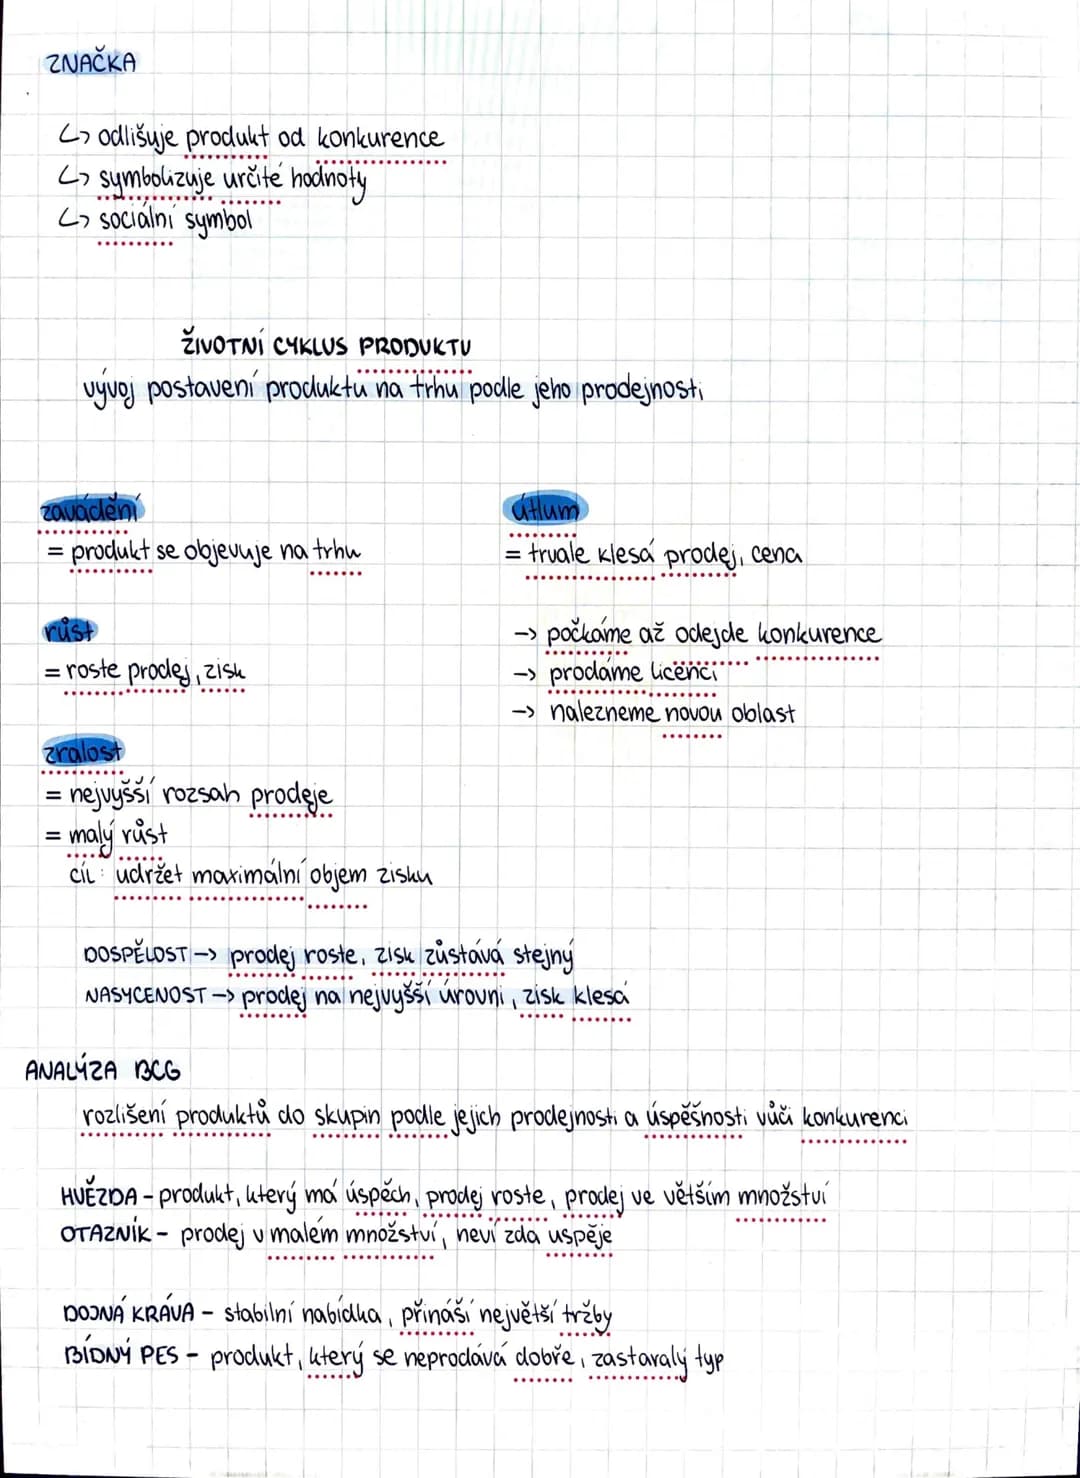 ZNAČKA
↳ odlišuje produkt od konkurence
↳ symbolizuje určité hodnoty
↳ sociální symbol
ŽIVOTNÍ CYKLUS PRODUKTU
vývoj postavení produktu na trhu podle jeho prodejnosti
zavádění
= produkt se objevuje na trhu
růst
= roste prodej, zisk
zralost
= nejvyšší rozsah prodeje
= malý růst
cíl: udržet maximální objem zisku
útlum
= trvale klesá prodej, cena
-> počkáme až odejde konkurence
-> prodáme licenci
-> nalezneme novou oblast
DOSPĚLOST -> prodej roste, zisk zůstává stejný
NASYCENOST -> prodej na nejvyšší úrovni, zisk klesá
ANALÝZA BCG
rozlišení produktů do skupin podle jejich prodejnosti a úspěšnosti vůči konkurenci
HVĚZDA - produkt, který má úspěch, prodej roste, prodej ve větším množství
OTAZNÍK - prodej v malém množství, neví zda uspěje
DOJNÁ KRÁVA - stabilní nabídka, přináší největší tržby
BÍDNÝ PES - produkt, který se neprodává dobře, zastaralý typ